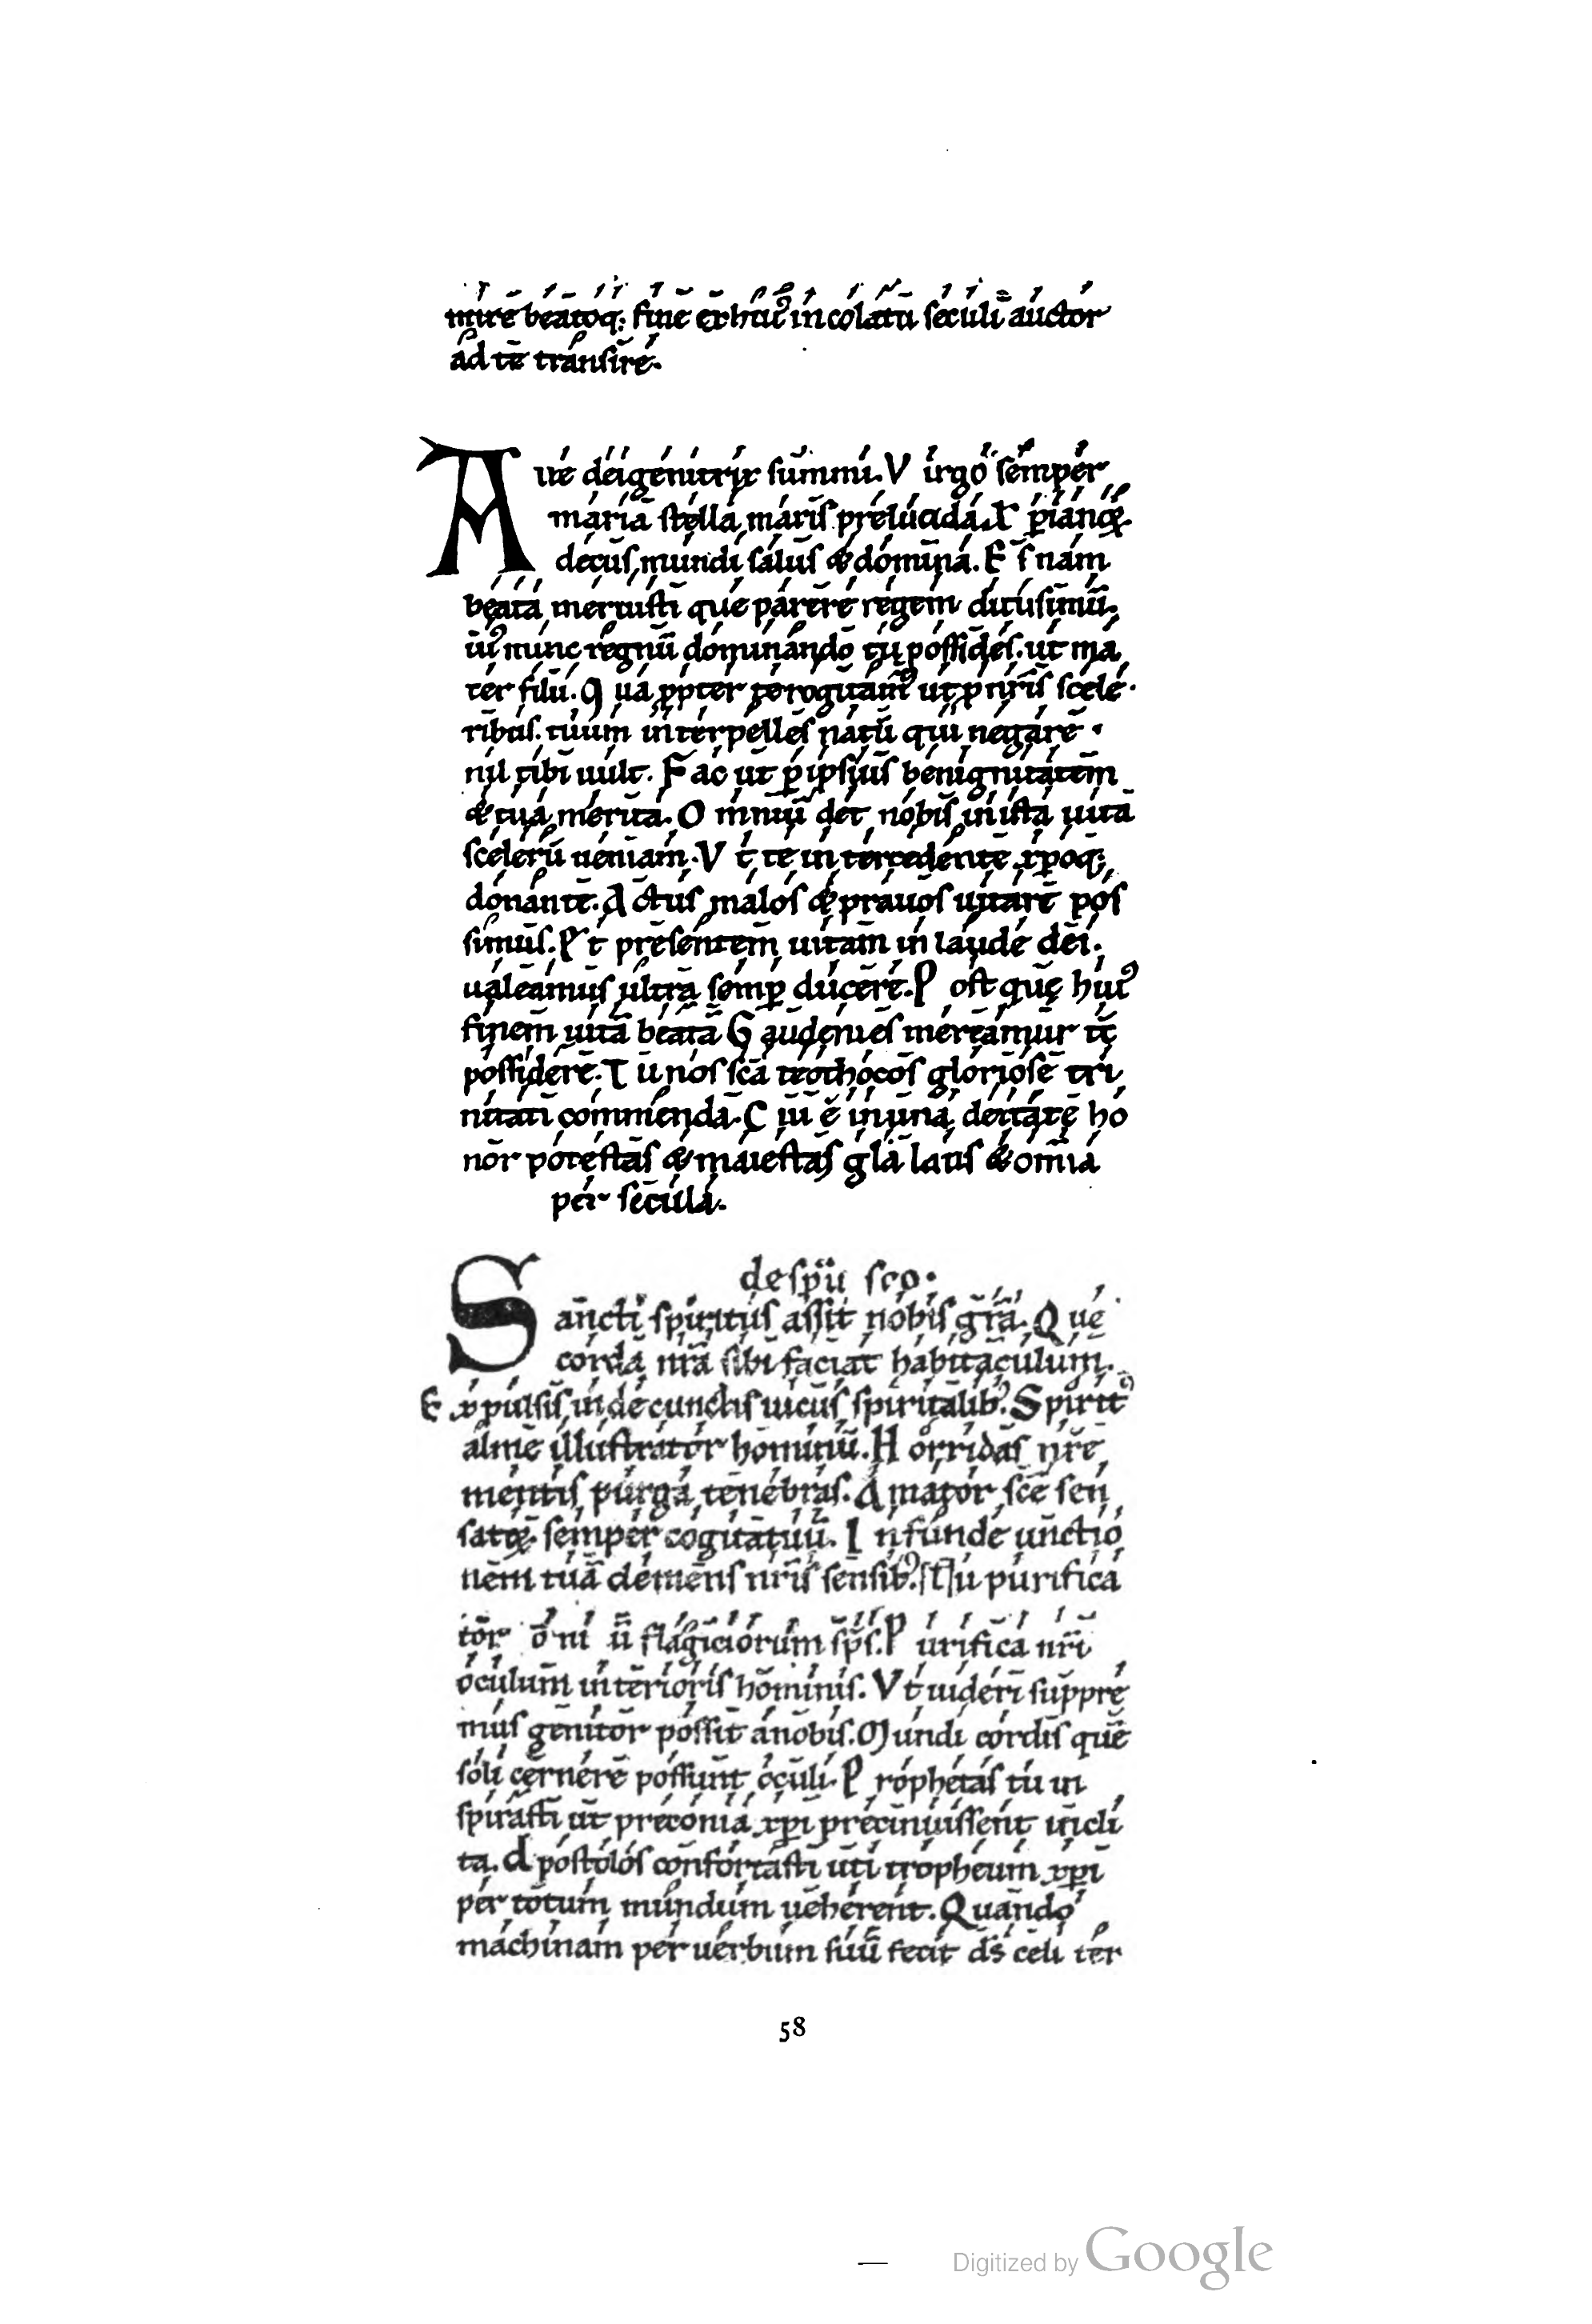 mire beatoq; fine ex hui᾽ incolatū seculi auctor
ad te transire.
Aue dei genitrix summi. Virgo semper
maria stella maris prelucida. X p̄ianoꝝ
decus mundi salus & domina. Es nam
beata meruisti que parere regem
cui᾽ nunc regnū dominando tu possides. ut ma
ter filii. Qua ꝓpter te rogitam᾽ ut ꝓ nr̄is scele
ribus. tuum interpelles natū qui negare
nil tibi uult. Fac ut ꝑ ipsius benignitatem
& tua merita. Omniū det nobis in ista uita
scelerū ueniam. Vt te intercedente xp̄oq;
donante. Actus malos & prauos uitare pos
simus. Et presentem uitam in laude dei.
ualeamus ultra semꝑ ducere. Post que hui᾽
finem uita beata Gaudentes mereamur te
possidere. Tu nos sc̄a teothocos gloriose tri
nitati commenda. Cui ē in una deitate ho
nor potestas & maiestas gl̄a laus & om̄ia
per secula.
de sp̄u sc̄o.
Sancti spiritus assit nobis gr̄a. Que
corda nr̄a sibi faciat habitaculum.
Expulsis inde cunctis uiciis spiritalib᾽. Spirit᾽
alme illustrator hominū. Horridas nr̄e
mentis purga tenebras. Amator sc̄e sen
satoꝝ semper cogitatuū. Infunde unctio
nem tuā clemens nr̄is sensib᾽. Tu purifica
tor om̄niū flagiciorum sp̄s. Purifica nr̄i
oculum interioris hominis. Vt uideri suppre
mus genitor possit a nobis. Mundi cordis quē
soli cernere possunt oculi. Prophetas tu in
spirasti ut preconia xp̄i precinuissent incli
ta. Apostolos confortasti uti tropheum xp̄i
per totum mundum ueherent. Quando
machinam per uerbum suū fecit d̄s celi ter
58
Digitized by Google